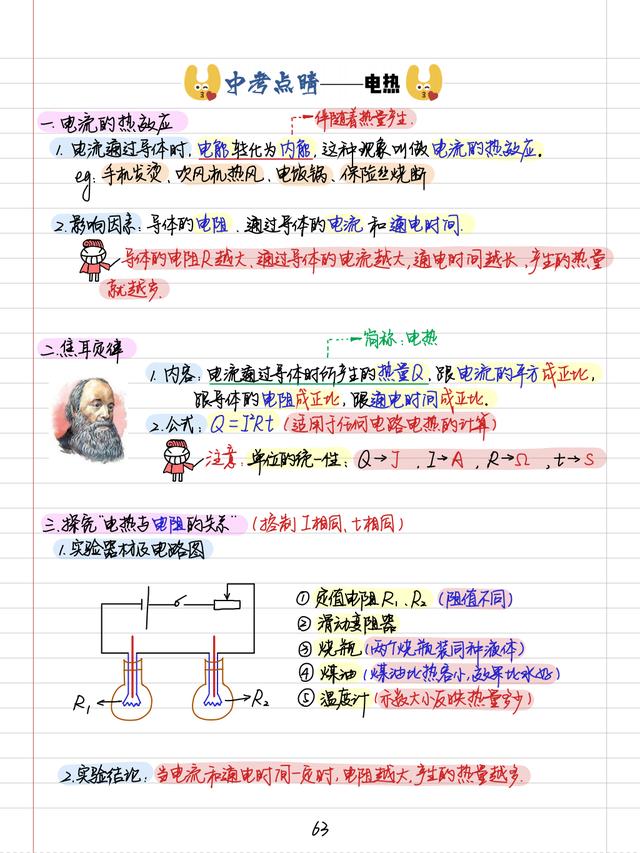 中考点晴——电热
一.电流的热效应
伴随着热量产生.
1.电流通过导体时,电能转化为内能,这种现象叫做电流的热效应.
eg:手机发烫、吹风机热风、电饭锅、保险丝烧断
2.影响因素:导体的电阻、通过导体的电流和通电时间.
导体的电阻R越大、通过导体的电流越大,通电时间越长,产生的热量
就越多.
简称:电热
二.焦耳定律
1.内容:电流通过导体时所产生的热量Q,跟电流的平方成正比,
跟导体的电阻成正比,跟通电时间成正比.
2.公式:Q=I²Rt (适用于任何电路电热的计算)
注意:单位的统一性:Q→J、I→A、R→Ω、t→S
三.探究"电热与电阻的关系"(控制I相同、t相同)
1.实验器材及电路图
① 定值电阻R₁、R₂ (阻值不同)
② 滑动变阻器
③ 烧瓶(两个烧瓶装同种液体)
④ 煤油(煤油比热容小,效果比水好)
⑤ 温度计(示数大小反映热量多少)
R₁
R₂
2.实验结论:当电流和通电时间一定时,电阻越大,产生的热量越多.
63